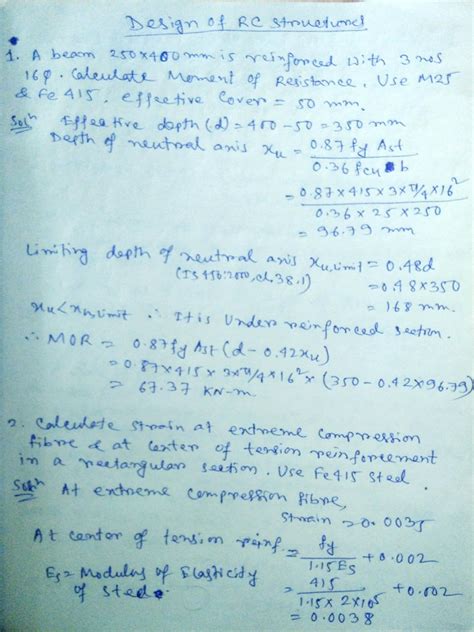 Design of RC Structures
1. A beam 250x400mm is reinforced with 3 nos
16φ. Calculate Moment of Resistance. Use M25
& Fe 415. effective Cover = 50 mm.
Solⁿ Effective depth (d) = 400 - 50 = 350 mm
Depth of neutral axis xu = 0.87 fy Ast / 0.36 fck b
= 0.87 x 415 x 3 x π/4 x 16² / 0.36 x 25 x 250
= 96.79 mm
Limiting depth of neutral axis xu,limit = 0.48d
(IS 456:2000, cl. 38.1) = 0.48 x 350
= 168 mm.
xu < xu,limit ∴ It is Under reinforced section.
∴ MOR = 0.87 fy Ast (d - 0.42 xu)
= 0.87 x 415 x 3 x π/4 x 16² x (350 - 0.42 x 96.79)
= 67.37 KN-m
2. Calculate strain at extreme compression
fibre & at center of tension reinforcement
in a rectangular section. Use Fe415 steel.
Solⁿ At extreme compression fibre,
strain = 0.0035
At center of tension reinf. = fy / 1.15 Es + 0.002
Es = Modulus of Elasticity
of Steel. = 415 / 1.15 x 2 x 10⁵ + 0.002
= 0.0038